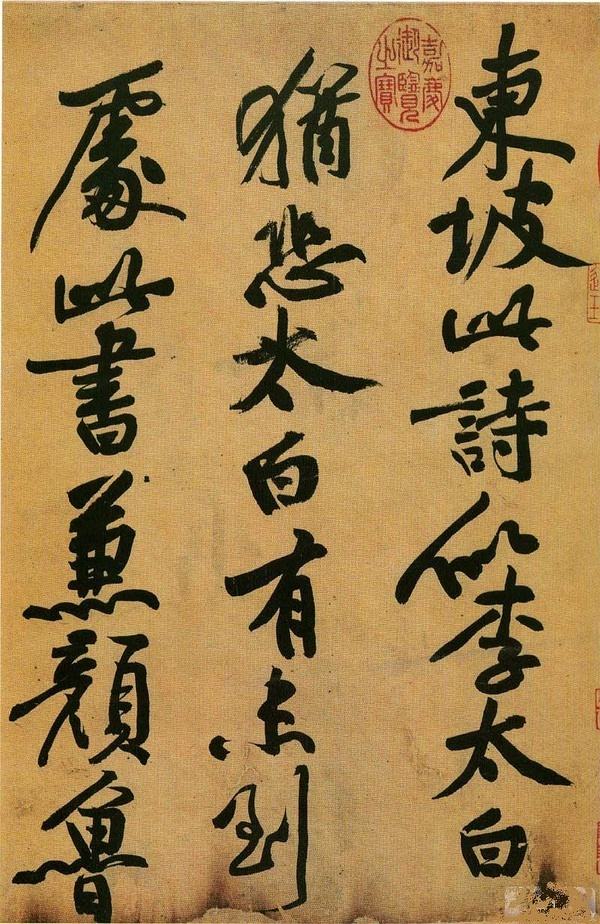 東坡此詩似李太白
猶恐太白有未到
處此書兼顔魯
嘉慶
御覽
之寶